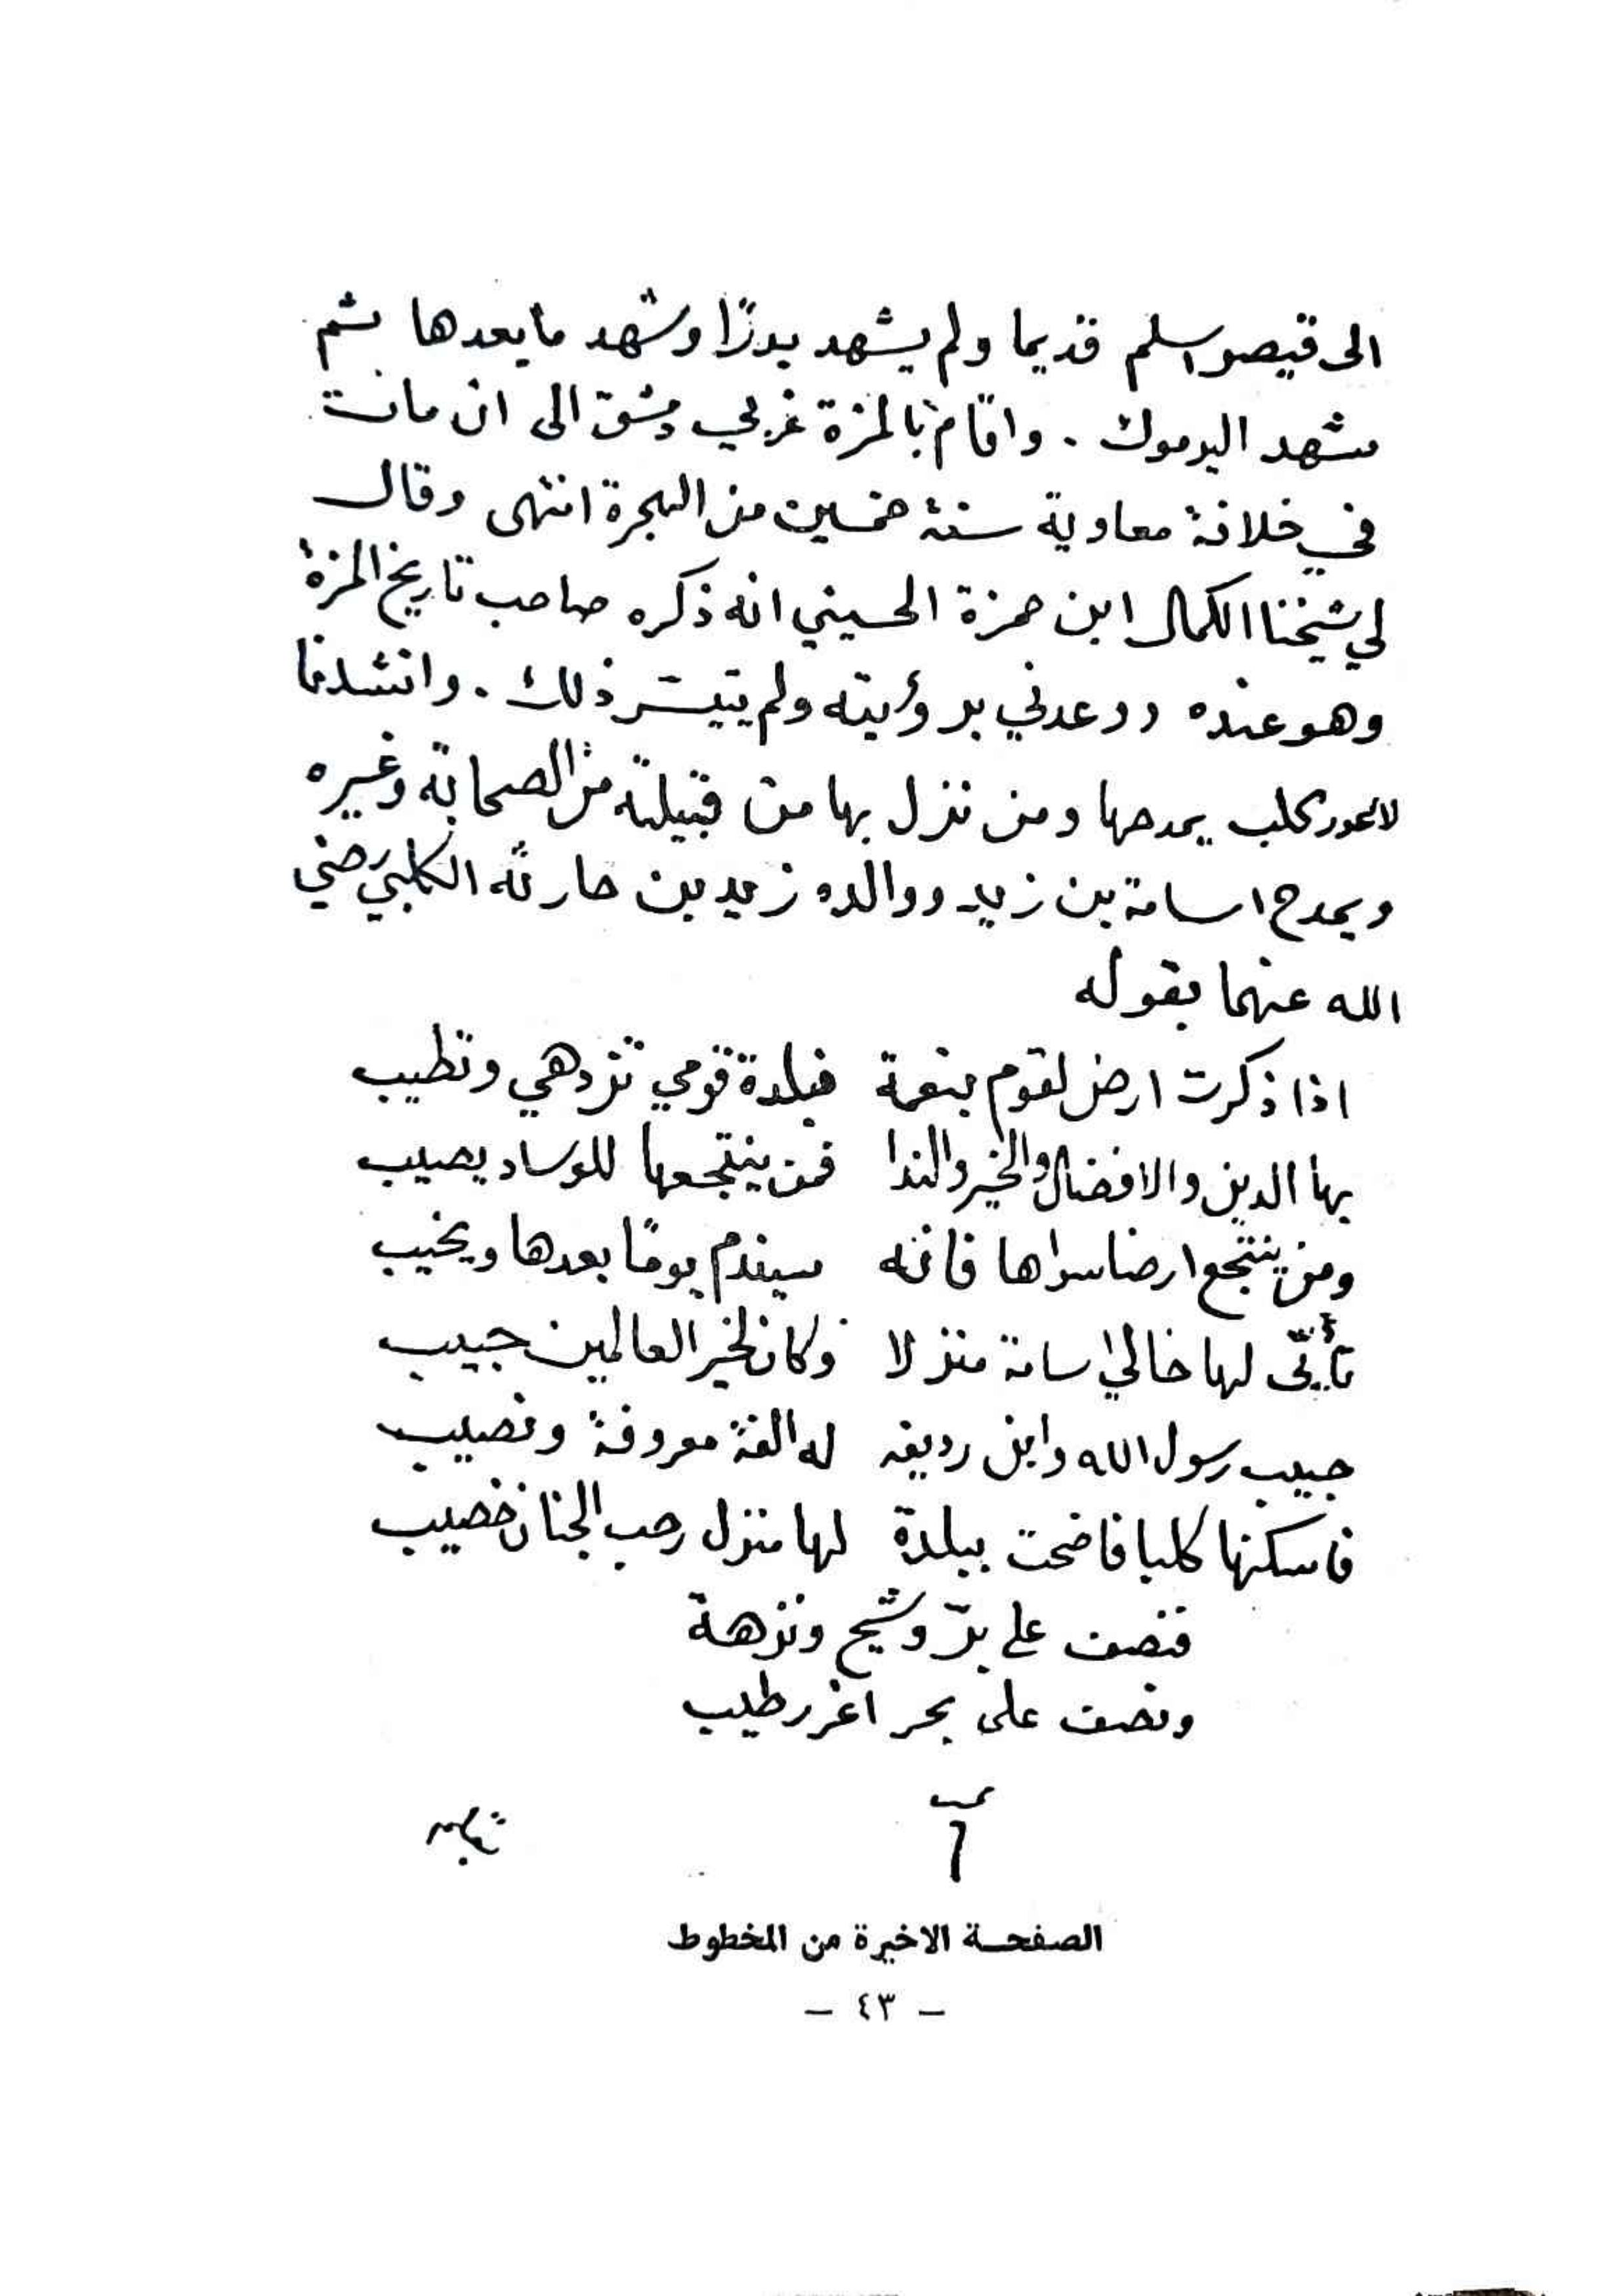 الى قيصر اسلم قديما ولم يشهد بدرًا وشهد مابعدها ثم
شهد اليرموك . واقام بالمزة غربي دمشق الى ان مات
في خلافة معاوية سنة خمسين من الهجرة انتهى وقال
لي شيخنا الكمال ابن حمزة الحسيني انه ذكره صاحب تاريخ المزة
وهو عنده ووعدني برؤيته ولم يتيسر ذلك . وانشدنا
لاعور كلب يمدحها ومن نزل بها من قبيلته من الصحابة وغيره
ويمدح اسامة بن زيد ووالده زيد بن حارثه الكلبي رضي
الله عنهما بقوله
اذا ذكرت ارض لقوم بنعمة فبلدة قومي تزدهي وتطيب
بها الدين والافضال والخير والندا فمن ينتجعها للوساد يصيب
ومن ينتجع ارضا سواها فانه سيندم يومًا بعدها ويخيب
تأتى لها خالي اسامة منزلا وكان لخير العالمين حبيب
حبيب رسول الله وابن رديفه له الفة معروفة ونصيب
فاسكنها كلبا فاضحت ببلدة لها منزل رحب الجنان خصيب
فنصف على برّ وشيح ونزهة
ونصف على بحر اغر رطيب
الصفحة الاخيرة من المخطوط
– ٤٣ –